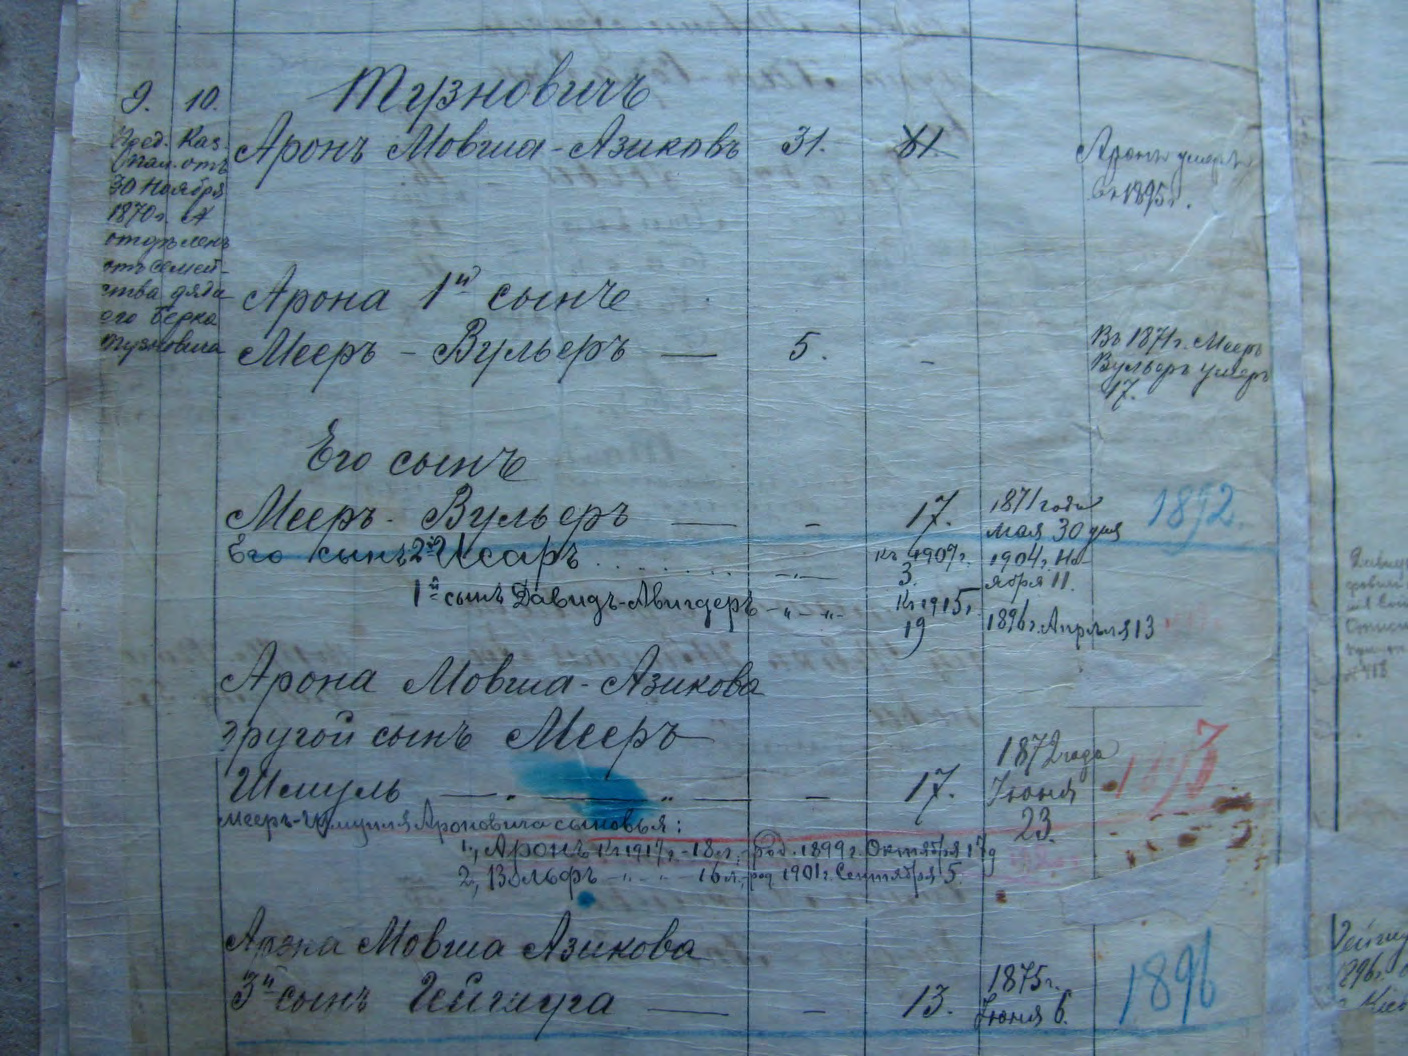 9. 10. Тузновичъ
Пред. Каз.
Пал. отъ
30 Ноября
1870 г. №
отдѣленъ
отъ семей-
ства дяди
его Берка
Тузновича
Аронъ Мовша-Азиковъ 31. 81.
Аронъ умеръ
въ 1895 г.
Арона 1й сынъ
Мееръ - Вульферъ — 5. -
Въ 1871 г. Мееръ
Вульферъ умеръ
17.
Его сынъ
Мееръ - Вульферъ — - 17. 1871 года
мая 30 дня
1892.
Его сынъ 2й Исаръ . . . . . . . . -„- къ 1907 г. 1904 г. Но-
3. ября 11.
1й сынъ Давидъ-Авигдеръ -„-„- Къ 1915 г.
19 1896 г. Апрѣля 13
Арона Мовша-Азикова
другой сынъ Мееръ
Шмуль — „ — „ — - 17. 1872 года
Іюня
23.
1893
Мееръ-Шмуиля Ароновича сыновья:
1, Аронъ Къ 1917 г. - 18 л., род. 1899 г. Октября 17 д
2, Вольфъ -„-„- 16 л., род 1901 г. Сентября 5.
Арона Мовша Азикова
3й сынъ Гейшуга — - 13. 1875 г.
Іюня 6.
1896